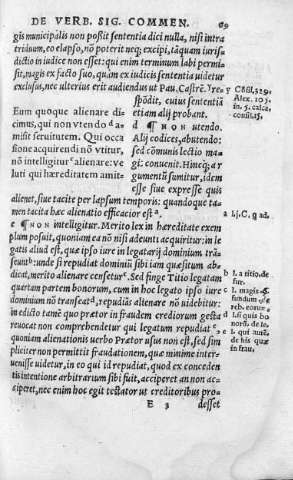 DE VERB. SIG. COMMEN. 69
gis municipalis non possit sententia dici nulla, nisi intra
triduum, eo elapso, nō poterit neq; excipi, tāquam iurisdictio
in iudice non esset: qui enim terminum labi permisit,
magis ex facto suo, quàm ex iudicis sententia uidetur
exclusus, nec ulterius erit audiendus ut Pau. Castrē.
spōdit, cuius sententiā
etiam alij probant.
Eum quoque alienare dicimus,
qui non vtendo
amisit seruitutem. Qui occasione
acquirendi nō vtitur,
nō intelligitur alienare: veluti
qui hæreditatem amittit
d ¶ NON utendo.
Alij codices, abutendo:
sed cōmunis lectio magi
conuenit. Hincq; argumentū
sumitur, idem
esse siue expresse quis
alienet, siue tacite per lapsum temporis: quandoque tamen
tacita hæc alienatio efficacior est a.
e ¶ NON intelligitur. Merito lex in hæreditate exemplum
posuit, quoniam ea nō nisi adeunti acquiritur: in legatis
aliud est, quæ ipso iure in legatarij dominium trāseunt:
unde si repudiat dominiū sibi iam quæsitum abdicat,
merito alienare censetur. Sed finge Titio legatam
quartam partem bonorum, cum in hoc legato ipso iure
dominium nō transeat, repudiās alienare nō uidebitur:
in edicto tamē quo prætor in fraudem creditorum gesta
reuocat non comprehendetur qui legatum repudiat,
quoniam alienationis uerbo Prætor usus non est, sed simpliciter
non permittit fraudationem, quæ minime interuenisse
uidetur, in eo qui id repudiat, quod ex concedentis
intentione arbitrarium sibi fuit, acciperet an non acciperet,
nec enim hoc egit testator ut creditoribus hæreditas
E 3 desset
a l.j. C. q ad.
b l. a titio de
fur.
c l. magis
fundum de
reb. eorum.
d l. si quis bonorū.
de le.
e l. qui aut.
de his quæ
in frau.